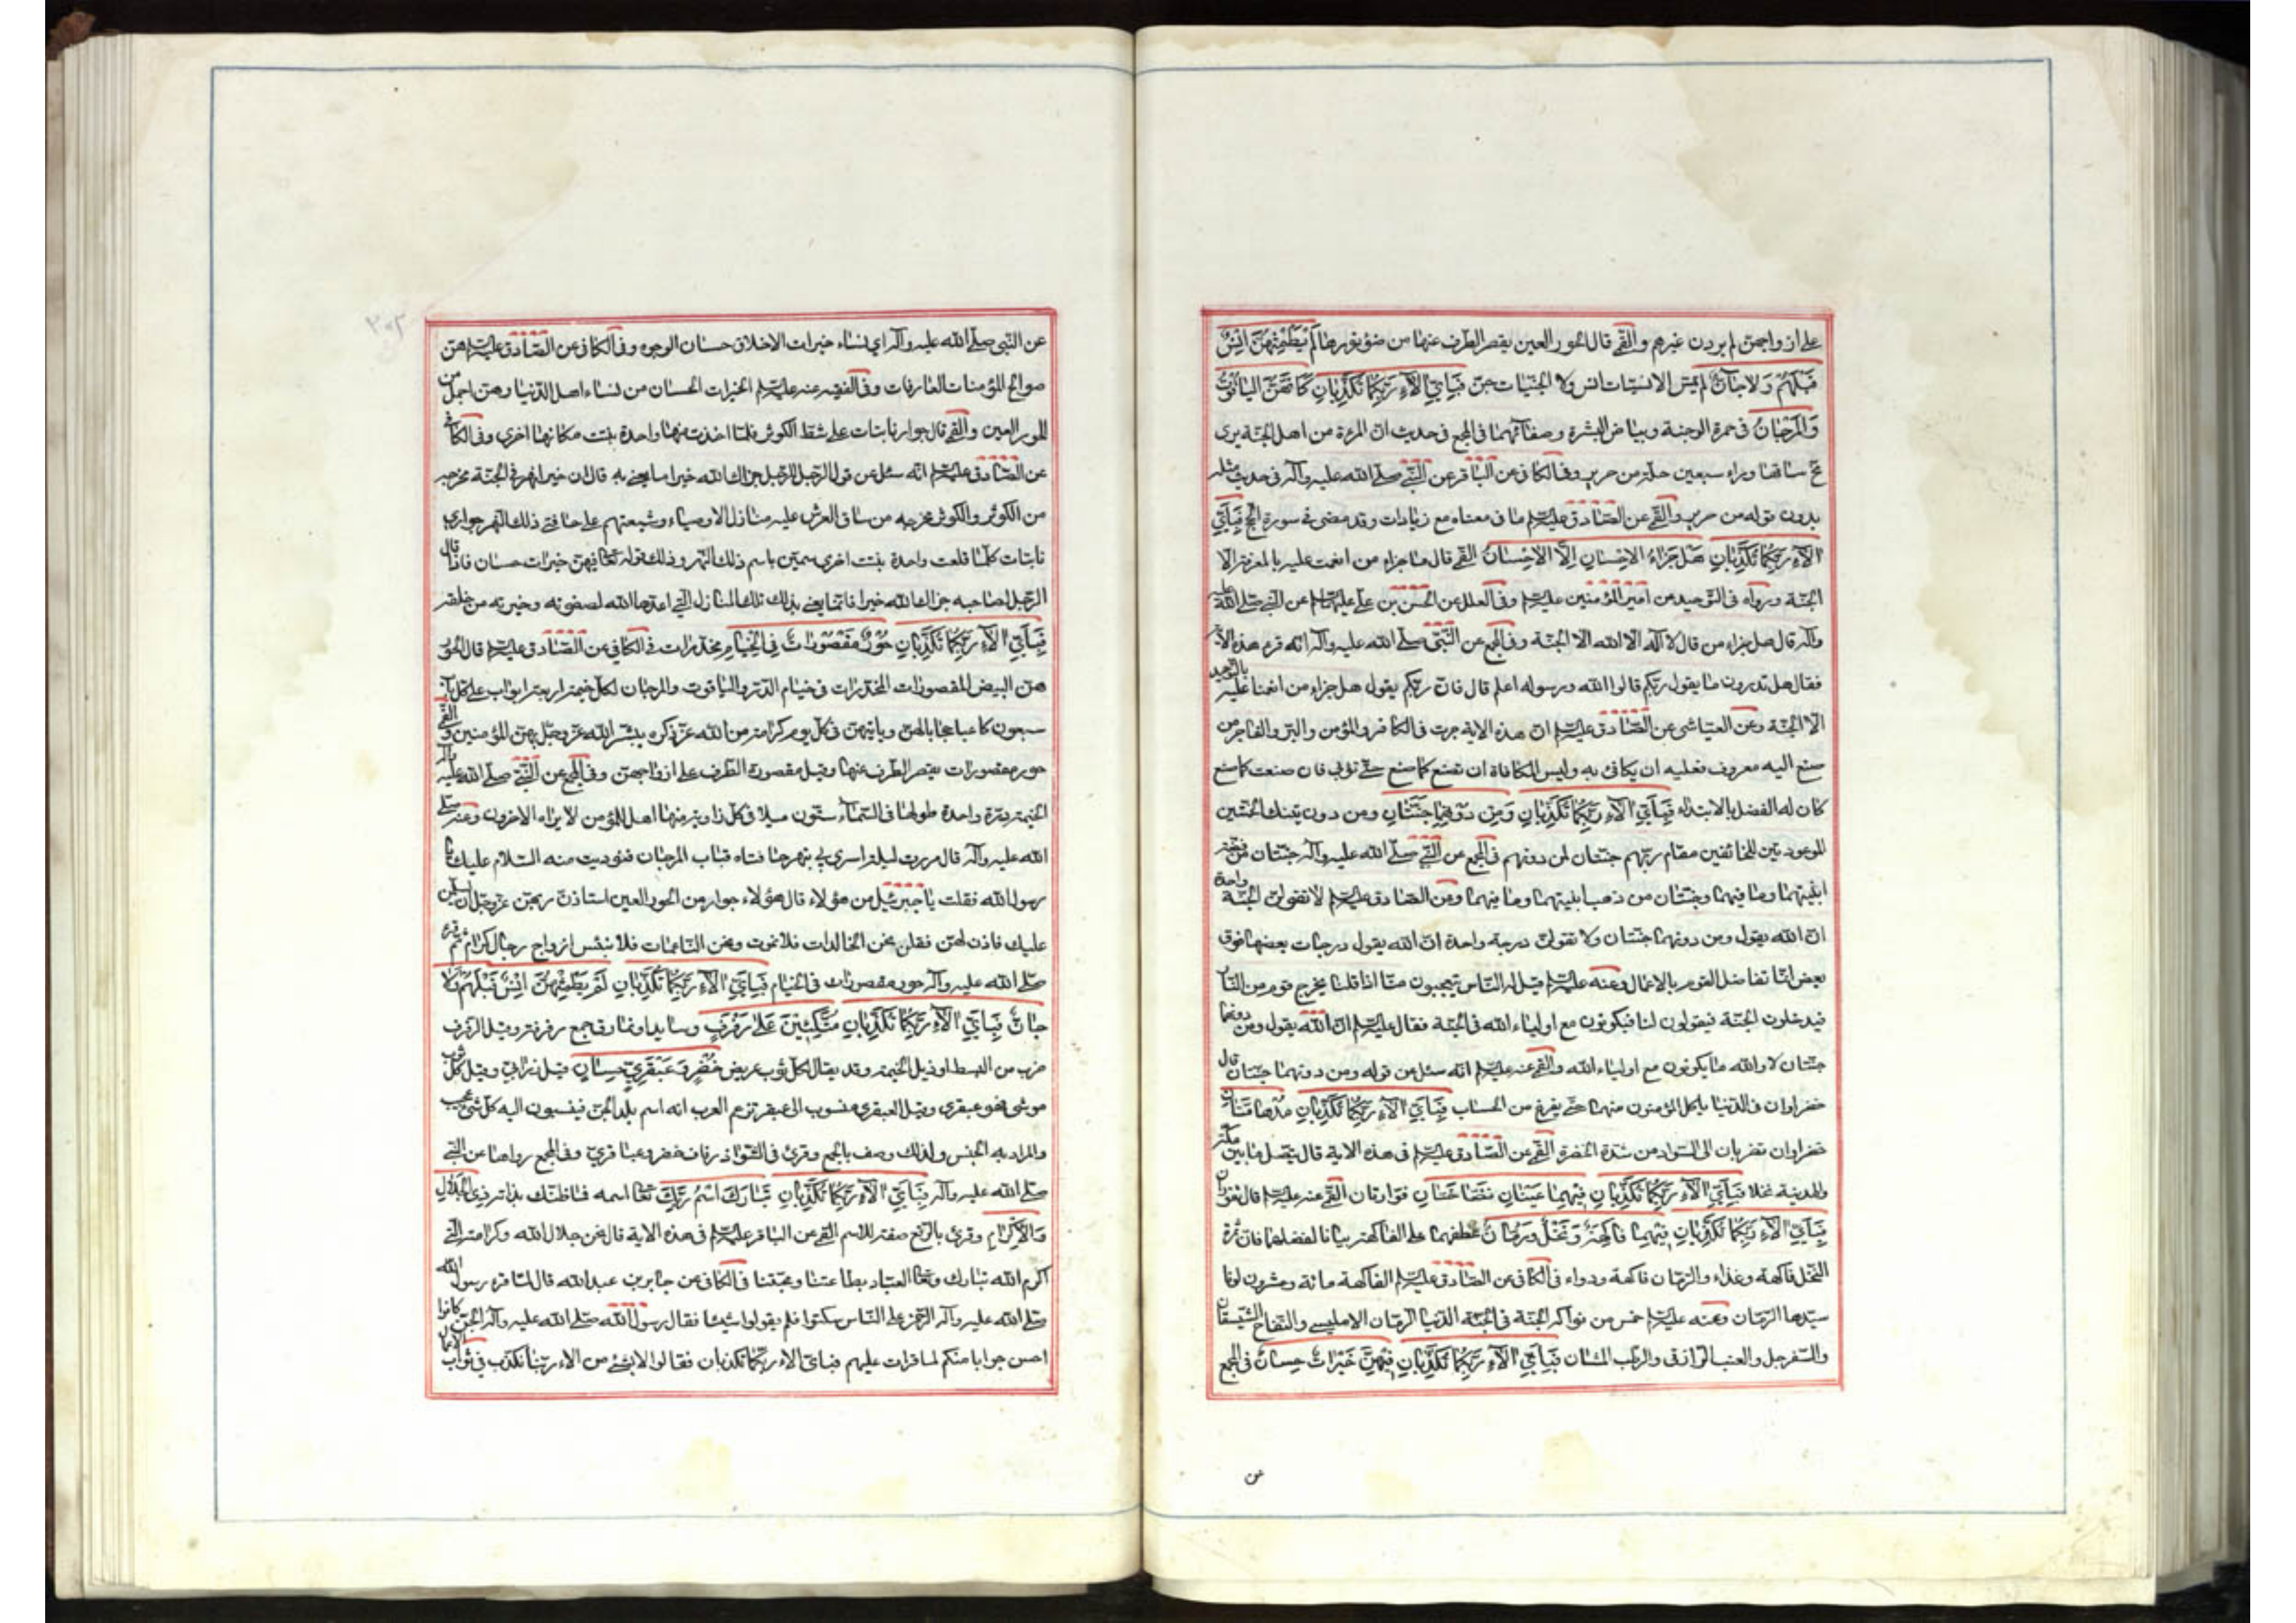 على ازواجهن لم يردن غيرهم والقمي قال الحور العين يقصر الطرف عنها من ضوء نورها لَمْ يَطْمِثْهُنَّ اِنْسٌ
قَبْلَهُمْ وَلا جانٌّ لم يمس الانسيات انس ولا الجنيات جن فَبِاَيِّ الآءِ رَبِّكُما تُكَذِّبانِ كَاَنَّهُنَّ الياقُوتُ
وَالْمَرْجانُ في حمرة الوجنة وبياض البشرة وصفائهما في المجمع في حديث ان المرءة من اهل الجنة يرى
مخ ساقها وراء سبعين حلة من حرير وفي الكافي عن الباقر عن النبي صلى الله عليه وآله في حديث مثله
بدون قوله من حرير والقمي عن الصادق عليه السلم ما في معناه مع زيادات وقد مضى في سورة الحج فَبِاَيِّ
الآءِ رَبِّكُما تُكَذِّبانِ هَلْ جَزاءُ الاِحْسانِ اِلَّا الاِحْسانُ القمي قال ما جزاء من انعمت عليه بالمعرفة الا
الجنة ورواه في التوحيد عن امير المؤمنين عليه السلم وفي العلل عن الحسن بن علي عليهما السلم عن النبي صلى الله عليه
وآله قال هل جزاء من قال لا اله الا الله الا الجنة وفي المجمع عن النبي صلى الله عليه وآله انه قرء هذه الآية
فقال هل تدرون ما يقول ربكم قالوا الله ورسوله اعلم قال فان ربكم يقول هل جزاء من انعمنا عليه بالتوحيد
الا الجنة وعن العياشي عن الصادق عليه السلم ان هذه الاية جرت في الكافر والمؤمن والبر والفاجر من
صنع اليه معروف فعليه ان يكافئ به وليس المكافاة ان تصنع كما صنع حتى تربي فان صنعت كما صنع
كان له الفضل بالابتداء فَبِاَيِّ الآءِ رَبِّكُما تُكَذِّبانِ وَمِنْ دُونِهِما جَنَّتانِ ومن دون تينك الجنتين
الموعودتين للخائفين مقام ربهم جنتان لمن دونهم في المجمع عن النبي صلى الله عليه وآله جنتان من فضة
ابنيتهما وما فيهما وجنتان من ذهب ابنيتهما وما فيهما وعن الصادق عليه السلم لا تقولن الجنة واحدة
ان الله يقول ومن دونهما جنتان ولا تقولن درجة واحدة ان الله يقول درجات بعضها فوق
بعض انما تفاضل القوم بالاعمال وعنه عليه السلم قيل له الناس يتعجبون منا اذا قلنا يخرج قوم من النار
فيدخلون الجنة فيقولون لنا فيكونون مع اولياء الله في الجنة فقال عليه السلم ان الله يقول ومن دونهما
جنتان لا والله ما يكونون مع اولياء الله والقمي عنه عليه السلم انه سئل عن قوله ومن دونهما جنتان قال
خضراوان في الدنيا ياكل المؤمنون منهما حتى يفرغ من الحساب فَبِاَيِّ الآءِ رَبِّكُما تُكَذِّبانِ مُدْهامَّتانِ
خضراوان تضربان الى السواد من شدة الخضرة القمي عن الصادق عليه السلم في هذه الاية قال يتصل ما بين مكة
والمدينة نخلا فَبِاَيِّ الآءِ رَبِّكُما تُكَذِّبانِ فِيهِما عَيْنانِ نَضّاخَتانِ فوارتان القمي عنه عليه السلم قال تفوران
فَبِاَيِّ الآءِ رَبِّكُما تُكَذِّبانِ فِيهِما فاكِهَةٌ وَنَخْلٌ وَرُمّانٌ عطفهما على الفاكهة بيانا لفضلهما فان ثمرة
النخل فاكهة وغذاء والرمان فاكهة ودواء في الكافي عن الصادق عليه السلم الفاكهة مائة وعشرون لونا
سيدها الرمان وعنه عليه السلم خمس من فواكه الجنة في الجنة الدنيا الرمان الامليسي والتفاح الشيسقان
والسفرجل والعنب الرازقي والرطب المشان فَبِاَيِّ الآءِ رَبِّكُما تُكَذِّبانِ فِيهِنَّ خَيْراتٌ حِسانٌ في المجمع
عن
عن النبي صلى الله عليه وآله اي نساء خيرات الاخلاق حسان الوجوه وفي الكافي عن الصادق عليه السلم هن
صوالح المؤمنات العارفات وفي الفقيه عنه عليه السلم الخيرات الحسان من نساء اهل الدنيا وهن اجمل من
الحور العين والقمي قال جوار نابتات على شط الكوثر كلما اخذت منها واحدة نبتت مكانها اخرى وفي الكافي
عن الصادق عليه السلم انه سئل عن قول الرجل للرجل جزاك الله خيرا ما يعني به قال ان خيرا نهر في الجنة مخرجه
من الكوثر والكوثر مخرجه من ساق العرش عليه منازل الاوصياء وشيعتهم على حافتي ذلك النهر جواري
نابتات كلما قلعت واحدة نبتت اخرى سمين باسم ذلك النهر وذلك قوله تعالى فيهن خيرات حسان فاذا قال
الرجل لصاحبه جزاك الله خيرا فانما يعني بذلك تلك المنازل التي اعدها الله لصفوته وخيرته من خلقه
فَبِاَيِّ الآءِ رَبِّكُما تُكَذِّبانِ حُورٌ مَقْصُوراتٌ فِي الْخِيامِ مخدرات في الكافي عن الصادق عليه السلم قال الحور
هن البيض المقصورات المخدرات في خيام الدر والياقوت والمرجان لكل خيمة اربعة ابواب على كل باب
سبعون كاعبا حجابا لهن وياتيهن في كل يوم كرامة من الله عز ذكره يبشر الله عز وجل بهن المؤمنين والقمي
حور مقصورات يقصر الطرف عنها وقيل مقصورة الطرف على ازواجهن وفي المجمع عن النبي صلى الله عليه وآله
الخيمة درة واحدة طولها في السماء ستون ميلا في كل زاوية منها اهل للمؤمن لا يراه الاخرون وعنه صلى
الله عليه وآله قال مررت ليلة اسري بي بنهر حافتاه قباب المرجان فنوديت منه السلام عليك يا
رسول الله فقلت يا جبرئيل من هؤلاء قال هؤلاء جوار من الحور العين استاذن ربهن عز وجل ان يسلمن
عليك فاذن لهن فقلن نحن الخالدات فلا نموت ونحن الناعمات فلا نبئس ازواج رجال كرام ثم قرء
صلى الله عليه وآله حور مقصورات في الخيام فَبِاَيِّ الآءِ رَبِّكُما تُكَذِّبانِ لَمْ يَطْمِثْهُنَّ اِنْسٌ قَبْلَهُمْ وَلا
جانٌّ فَبِاَيِّ الآءِ رَبِّكُما تُكَذِّبانِ مُتَّكِئِينَ عَلى رَفْرَفٍ وسايد او نمارق جمع رفرفة وقيل الرفرف
ضرب من البسط او ذيل الخيمة وقد يقال لكل ثوب عريض خُضْرٍ وَعَبْقَرِيٍّ حِسانٍ قيل زرابي وقيل كل ثوب
موشى فهو عبقري وقيل العبقري منسوب الى عبقر تزعم العرب انه اسم بلد الجن فينسبون اليه كل شئ عجيب
والمراد به الجنس ولذلك وصف بالجمع وقرئ في الشواذ رفارف خضر وعباقري وفي المجمع رواها عن النبي
صلى الله عليه وآله فَبِاَيِّ الآءِ رَبِّكُما تُكَذِّبانِ تَبارَكَ اسْمُ رَبِّكَ تعالى اسمه فما ظنك بذاته ذِي الْجَلالِ
وَالاِكْرامِ وقرئ بالرفع صفة للاسم القمي عن الباقر عليه السلم في هذه الاية قال نحن جلال الله وكرامته التي
اكرم الله تبارك وتعالى العباد بطاعتنا ومحبتنا في الكافي عن جابر بن عبد الله قال لما قرء رسول الله
صلى الله عليه وآله الرحمن على الناس سكتوا فلم يقولوا شيئا فقال رسول الله صلى الله عليه وآله الجن كانوا
احسن جوابا منكم لما قرات عليهم فباي الاء ربكما تكذبان فقالوا لا بشئ من الاء ربنا نكذب في ثواب الاعمال